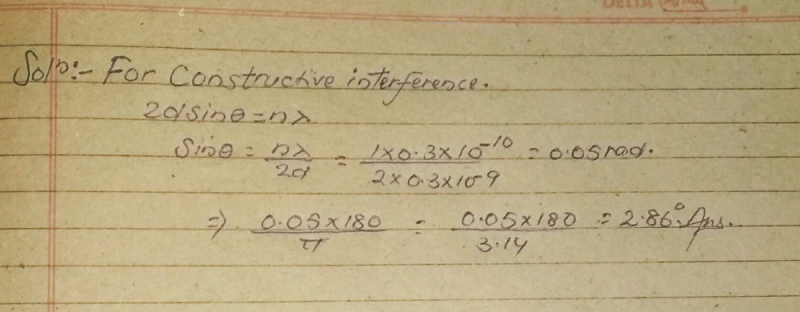 DELTA
Soln:- For Constructive interference.
2dsinθ = nλ
Sinθ = nλ/2d = 1×0.3×10^-10/2×0.3×10^-9 = 0.05rad.
⇒ 0.05×180/π = 0.05×180/3.14 = 2.86°. Ans.